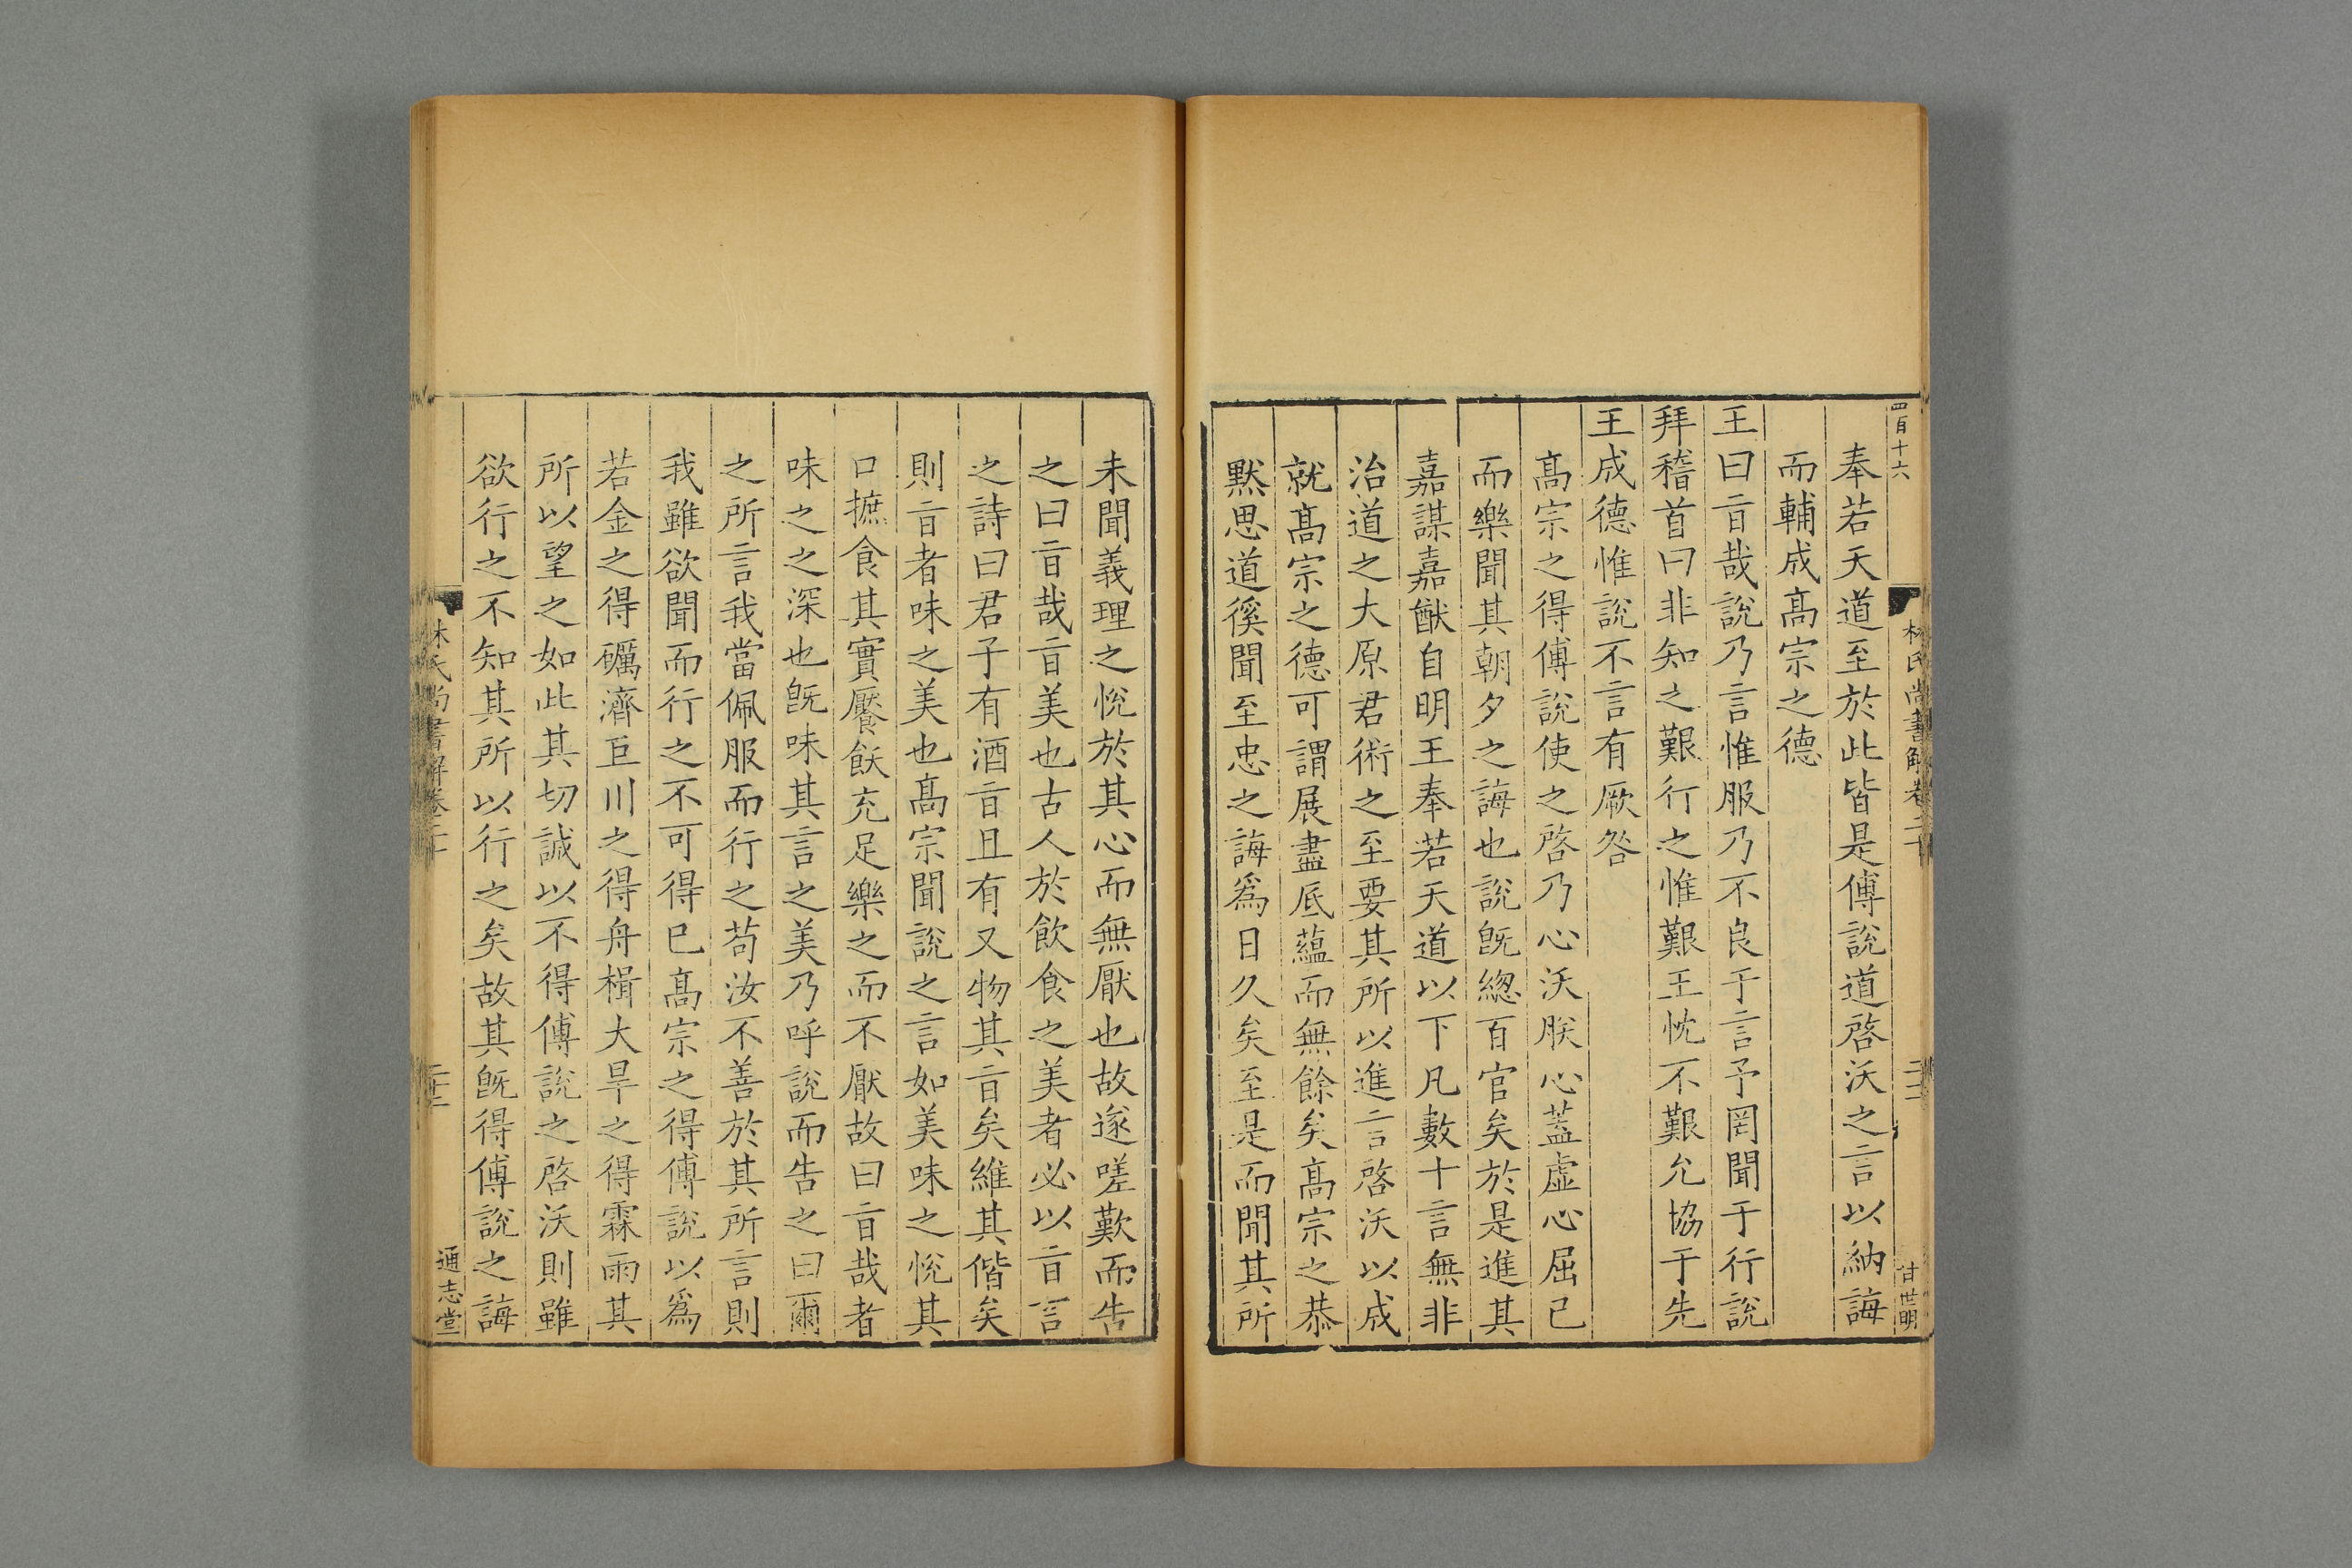 四百十六
林氏尚書解卷二十
甘世明
奉若天道至於此皆是傅說道啓沃之言以納誨
而輔成髙宗之德
王曰㫖哉說乃言惟服乃不良于言予罔聞于行說
拜稽首曰非知之艱行之惟艱王忱不艱允協于先
王成德惟說不言有厥咎
髙宗之得傅說使之啓乃心沃朕心蓋虛心屈己
而樂聞其朝夕之誨也說旣緫百官矣於是進其
嘉謀嘉猷自明王奉若天道以下凡數十言無非
治道之大原君術之至要其所以進言啓沃以成
就髙宗之德可謂展盡底蘊而無餘矣髙宗之恭
黙思道徯聞至忠之誨爲日久矣至是而聞其所
未聞義理之恱於其心而無厭也故遂嗟歎而告
之曰㫖哉㫖美也古人於飲食之美者必以㫖言
之詩曰君子有酒㫖且有又物其㫖矣維其偕矣
則㫖者味之美也髙宗聞說之言如美味之恱其
口摭食其實饜飫充足樂之而不厭故曰㫖哉者
味之之深也旣味其言之美乃呼說而告之曰爾
之所言我當佩服而行之苟汝不善於其所言則
我雖欲聞而行之不可得已髙宗之得傅說以爲
若金之得礪濟巨川之得舟楫大旱之得霖雨其
所以望之如此其切誠以不得傅說之啓沃則雖
欲行之不知其所以行之矣故其旣得傅說之誨
林氏尚書解卷二十
通志堂